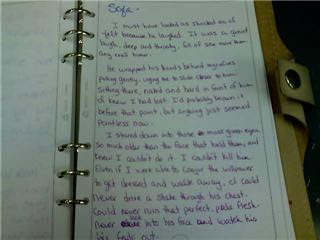 Sofa -
I must have looked as shocked as I
felt because he laughed. It was a great
laugh, deep and throaty, full of sex more than
any real humor.
He wrapped his hands behind my
pulling gently, urging me to slide closer to him
sitting there, naked and hard in front of him
I knew I had lost. I'd probably known it
before that point, but arguing just seemed
pointless now.
I stared down into those moss green eyes
so much older than the face that held them, and
knew I couldn't do it. I couldn't kill him.
Even if I were able to conjur the willpower
to get dressed and walk away, I could
never drive a stake through his chest.
Could never ruin that perfect, pale flesh.
never look into his face and watch his
fade out.